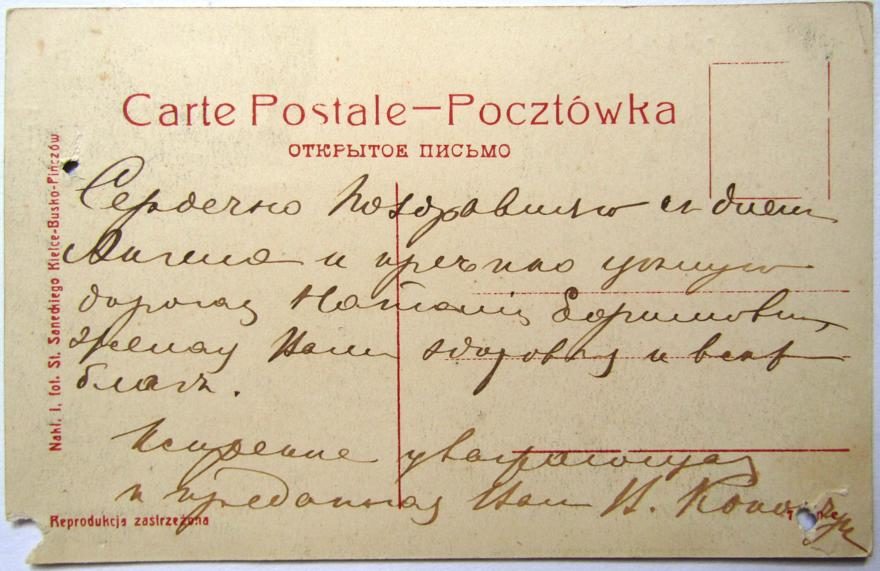 Carte Postale—Pocztówka
ОТКРЫТОЕ ПИСЬМО
Nakł. i. fot. St. Saneckiego Kielce-Busko-Pińczów
Сердечно поздравляю съ днем
Ангела и крѣпко цѣлую
дорогая Наталія Борисовна,
желаю Вам здоровья и всѣх
благъ.
Искренне уважающая
и преданная Вам Н.
Reprodukcja zastrzeżona